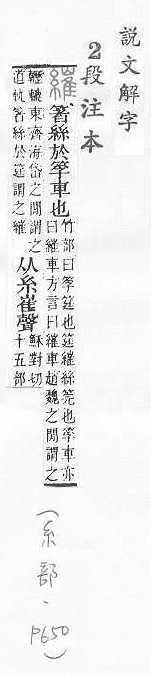 說文解字
2段注本
繀 箸絲於筟車也
竹部曰筟筳也筳繀絲筦也筟車亦
曰繀車方言曰繀車趙魏之閒謂之
轣轆東齊海岱之閒謂之
道軌箸絲於筳謂之繀
从糸崔聲
穌對切
十五部
(糸部、P650)